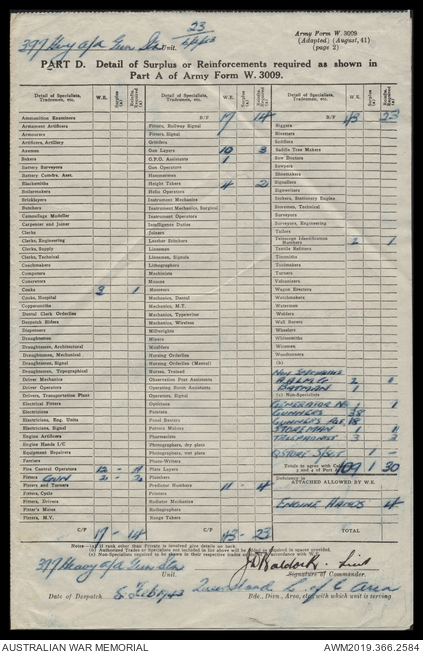 23
5/2/43
Army Form W. 3009
(Adapted) (August, 41)
(page 2)
397 Heavy a/a Gun Stn Unit.
PART D. Detail of Surplus or Reinforcements required as shown in
Part A of Army Form W. 3009.
Detail of Specialists, Tradesmen, etc. W.E. Surplus (a) Reinfcts. Required (a)
Ammunition Examiners
Armament Artificers
Armourers
Artificers, Artillery
Axemen
Bakers
Battery Surveyors
Battery Comdrs. Asst.
Blacksmiths
Boilermakers
Bricklayers
Butchers
Camouflage Modeller
Carpenter and Joiner
Clerks
Clerks, Engineering
Clerks, Supply
Clerks, Technical
Coachmakers
Computers
Concretors
Cooks 3 1
Cooks, Hospital
Coppersmiths
Dental Clerk Orderlies
Despatch Riders
Dispensers
Draughtsmen
Draughtsmen, Architectural
Draughtsmen, Mechanical
Draughtsmen, Signal
Draughtsmen, Topographical
Driver Mechanics
Driver Operators
Drivers, Transportation Plant
Electrical Fitters
Electricians
Electricians, Eng. Units
Electricians, Signal
Engine Artificers
Engine Hands I/C
Equipment Repairers
Farriers
Fire Control Operators 12 - 11
Fitters Gun 2 - 2
Fitters and Turners
Fitters, Cycle
Fitters, Drivers
Fitter's Mates
Fitters, M.V.
C/F 17 - 14
Detail of Specialists, Tradesmen, etc. W.E. Surplus (a) Reinfcts. Required (a)
B/F 17 14
Fitters, Railway Signal
Fitters, Signal
Grinders
Gun Layers 10 3
G.P.O. Assistants 1
Gun Operators
Hammermen
Height Takers 4 2
Hydro Electric
Instrument Mechanics
Instrument Mechanics, Surgical
Instrument Operators
Intelligence Duties
Joiners
Leather Stitchers
Linesmen
Linesmen, Signals
Lithographers
Machinists
Masons
Masseurs
Mechanics, Dental
Mechanics, M.T.
Mechanics, Typewriter
Mechanics, Wireless
Millwrights
Miners
Moulders
Nursing Orderlies
Nursing Orderlies (Mental)
Nurses, Trained
Observation Post Assistants
Operating Room Assistants
Operators, Signal
Opticians
Painters
Panel Beaters
Pattern Makers
Pharmacists
Photographers, dry plate
Photographers, wet plate
Photo-Writers
Plate Layers
Plumbers
Predictor Numbers 11 - 4
Printers
Radiator Mechanics
Radiographers
Range Takers
C/F 43 - 23
Detail of Specialists, Tradesmen, etc. W.E. Surplus (a) Reinfcts. Required (a)
B/F 43 23
Riggers
Riveters
Saddlers
Saddle Tree Makers
Saw Doctors
Sawyers
Shoemakers
Signallers
Signwriters
Stokers, Stationary Engine
Storemen, Technical
Surveyors
Surveyors, Engineering
Tailors
Telescope Identification Numbers 2 1
Textile Refitters
Tinsmiths
Toolmakers
Turners
Vulcanizers
Wagon Erectors
Watchmakers
Watermen
Welders
Well Borers
Wheelers
Whitesmiths
Wiremen
Woodturners
(b)
Non Specialists
A.A.L.M.G. 2
BATMAN 1
(c) Non-Specialists
GENERATOR No 1 1
GUNNERS 38
GUNNERS
STOREMAN 1 1
TELEPHONIST 3 3
QSTORE S/SGT 1 -
Totals to agree with Cols. 3 and 4 of Part A 109 1 30
Deficiency in
ATTACHED ALLOWED BY W.E.
ENGINE HANDS 4
TOTAL
Notes:—(a) If rank other than Private is involved give details on back.
(b) Authorized Trades or Specialists not included in list above will be added as required in spaces provided.
(c) Non-Specialists required to be shown in their respective trades in accordance with W.E.
397 Heavy a/a Gun Stn Unit.
Lieut
Signature of Commander.
Date of Despatch 5 Feb 1943 Queensland L of C Area
Bde., Divn., Area, etc., with which unit is serving
AUSTRALIAN WAR MEMORIAL
AWM2019.366.2584